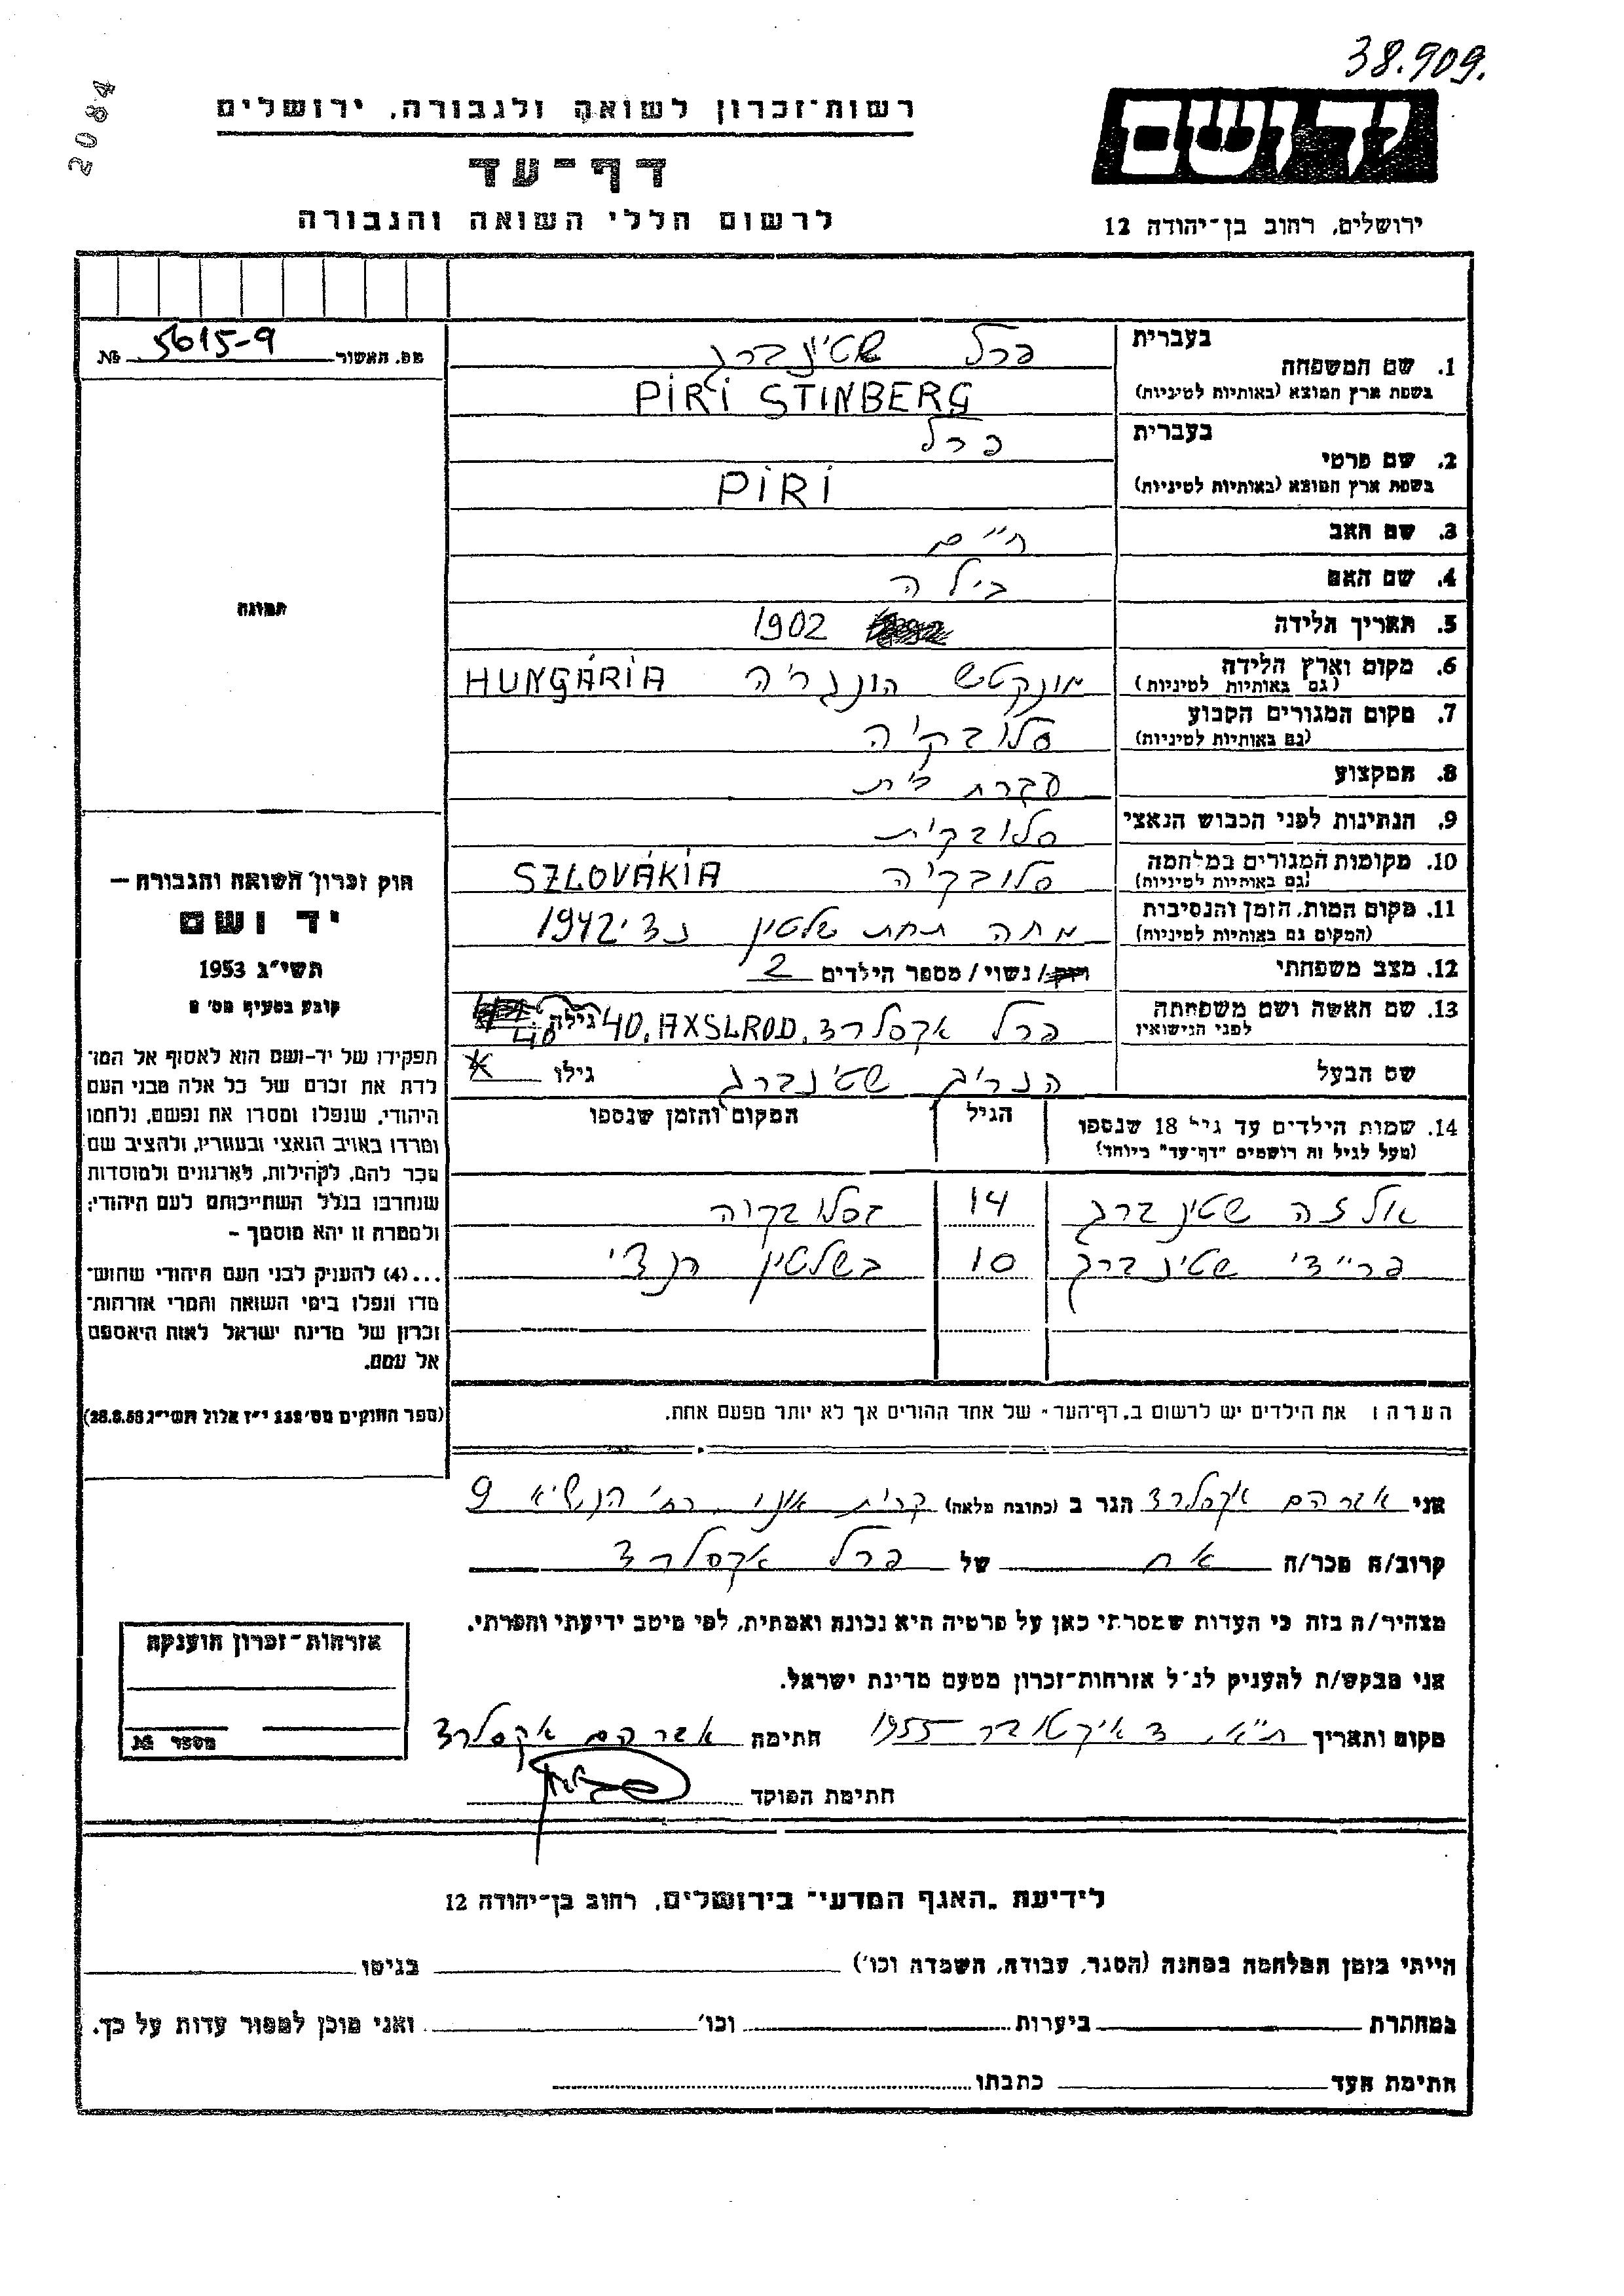 38.909.
2084
יד ושם
רשות-זכרון לשואה ולגבורה, ירושלים
דף-עד
לרשום חללי השואה והגבורה
ירושלים, רחוב בן-יהודה 12
מס. האשור 5615-9 №
בעברית פרל שטינברג
1. שם המשפחה
בשפת ארץ המוצא (באותיות לטיניות) PIRI STINBERG
בעברית פרל
2. שם פרטי
בשפת ארץ המוצא (באותיות לטיניות) PIRI
3. שם האב חיים
4. שם האם בילה
5. תאריך הלידה 1902
6. מקום וארץ הלידה מונקטש הונגריה HUNGÁRIA
(גם באותיות לטיניות)
7. מקום המגורים הקבוע סלובקיה
(גם באותיות לטיניות)
8. המקצוע עקרת בית
9. הנתינות לפני הכבוש הנאצי סלובקית
10. מקומות המגורים במלחמה סלובקיה SZLOVÁKIA
(גם באותיות לטיניות)
11. מקום המות, הזמן והנסיבות מתה תחת שלטון נצי 1942
(המקום גם באותיות לטיניות)
12. מצב משפחתי רווק/ נשוי/ מספר הילדים 2
13. שם האשה ושם משפחתה פרל אקסלרד, AXSLROD, 40 גילה 40
לפני הנישואין
שם הבעל הנריב שטינברג גילו
14. שמות הילדים עד גיל 18 שנספו הגיל המקום והזמן שנספו
(מעל לגיל זה רושמים "דף-עד" ביוחד)
אלזה שטינברג 14 זסלובקוה
פריידי שטינברג 10 בשלטון הנצי
הערה: את הילדים יש לרשום ב„דף-העד" של אחד ההורים אך לא יותר מפעם אחת.
תמונה
חוק זכרון השואה והגבורה —
יד ושם
תשי"ג 1953
קובע בסעיף מס' 2
תפקידו של יד-ושם הוא לאסוף אל המו־
לדת את זכרם של כל אלה מבני העם
היהודי, שנפלו ומסרו את נפשם, נלחמו
ומרדו באויב הנאצי ובעוזריו, ולהציב שם
וזכר להם, לקהילות, לארגונים ולמוסדות
שנחרבו בגלל השתייכותם לעם היהודי;
ולמטרה זו יהא מוסמך –
...(4) להעניק לבני העם היהודי שהוש־
מדו ונפלו בימי השואה והמרי אזרחות־
זכרון של מדינת ישראל לאות היאספם
אל עמם.
(ספר החוקים מס' 132 י"ז אלול תשי"ג 28.8.53)
אני אברהם אקסלרד הגר ב (כתובת מלאה) קרית אונו רח' הנשיא 9
קרוב/ה מכר/ה אח של פרל אקסלרד
מצהיר/ה בזה כי העדות שמסרתי כאן על פרטיה היא נכונה ואמתית, לפי מיטב ידיעתי והכרתי.
אני מבקש/ת להעניק לנ"ל אזרחות-זכרון מטעם מדינת ישראל.
מקום ותאריך ת"א, 3 איקטובר 1955 חתימה אברהם אקסלרד
חתימת הפוקד
אזרחות-זכרון הוענקה
מספר №
לידיעת „האגף המדעי" בירושלים, רחוב בן-יהודה 12
הייתי בזמן המלחמה במחנה (הסגר, עבודה, השמדה וכו') בגיטו
במחתרת ביערות וכו' ואני מוכן למסור עדות על כך.
חתימת העד כתבתו